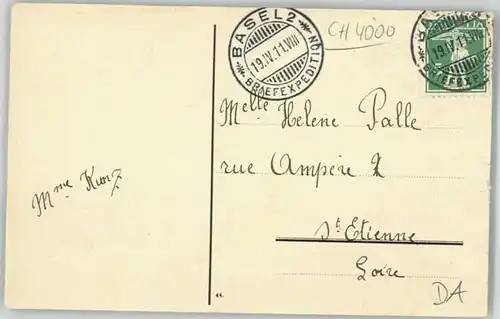 BASEL 2
19.IV.11.VIII
BRIEFEXPEDITION
CH 4000
19.IV.11.VIII
BRIEFEXPEDITION
Melle Helene Palle
rue Ampère 2
St Etienne
Loire
Mme Kunz
DA